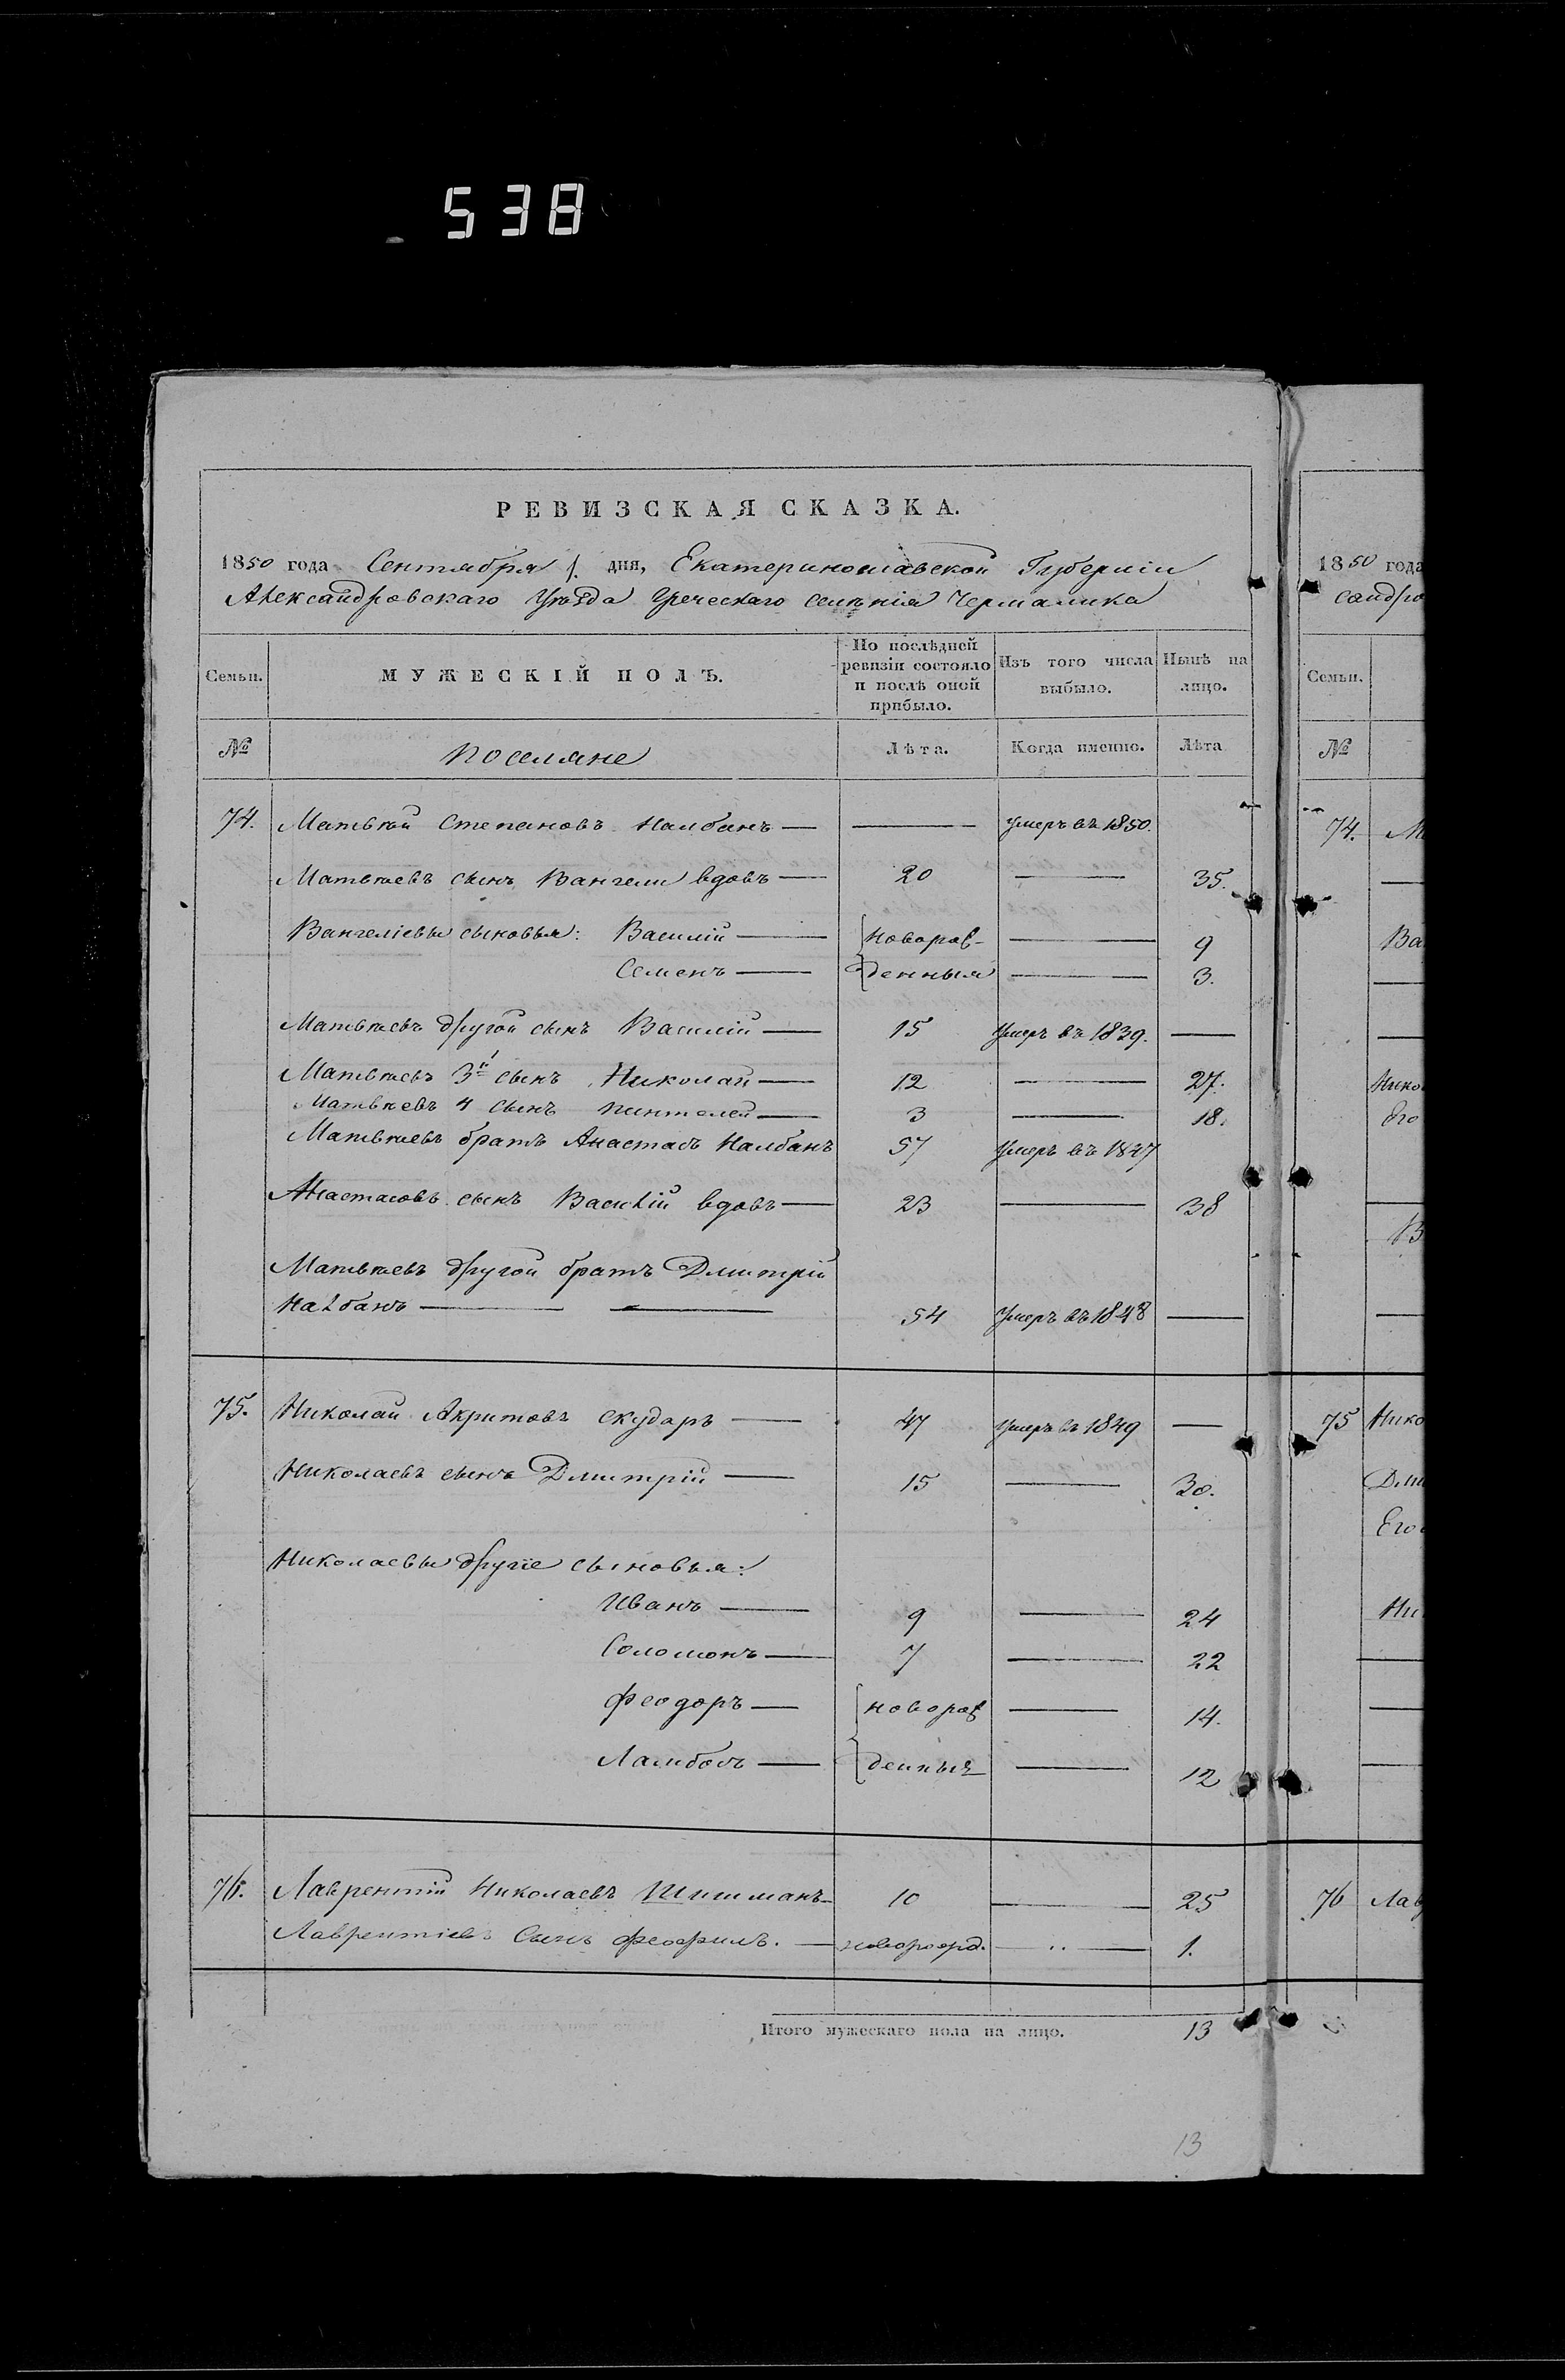 538
РЕВИЗСКАЯ СКАЗКА.
1850 года Сентября 1. дня, Екатеринославской Губерніи
Александровскаго Уѣзда Греческаго селенія Чермалика
Семьи. МУЖЕСКІЙ ПОЛЪ. По послѣдней ревизіи состояло и послѣ оной прибыло. Изъ того числа выбыло. Нынѣ на лицо.
№ поселяне Лѣта. Когда именно. Лѣта
74. Матвѣй Степановъ Налбанъ — — умеръ въ 1850.
Матвѣевъ сынъ Вангели вдовъ — 20 — 35.
Вангеліевы сыновья: Василій — новорож- — 9
Семенъ — денныя — 3.
Матвѣевъ другой сынъ Василій — 15 умеръ въ 1839. —
Матвѣевъ 3й сынъ Николай — 12 — 27.
Матвѣевъ 4 сынъ пинтелей — 3 — 18.
Матвѣевъ братъ Анастасъ Налбанъ 57 умеръ въ 1847
Анастасовъ сынъ Василій вдовъ — 23 — 38
Матвѣевъ другой братъ Дмитрій
Налбанъ — — 54 умеръ въ 1848 —
75. Николай Акритовъ скударъ — 47 умеръ въ 1849 —
Николаевъ сынъ Дмитрій — 15 — 30.
Николаевы другіе сыновья:
Иванъ — 9 — 24
Соломонъ — 7 — 22
Феодоръ — новорож — 14.
Ламбосъ — денныя — 12
76. Лаврентій Николаевъ Шишманъ — 10 — 25
Лаврентіевъ Сынъ Феофилъ. — новорожд. — 1.
Итого мужескаго пола на лицо. 13
13
1850 года
сандро
Семьи.
№
74. М
Ва
Нико
Его
В
75 Нико
Дми
Его
Ни
76 Лав